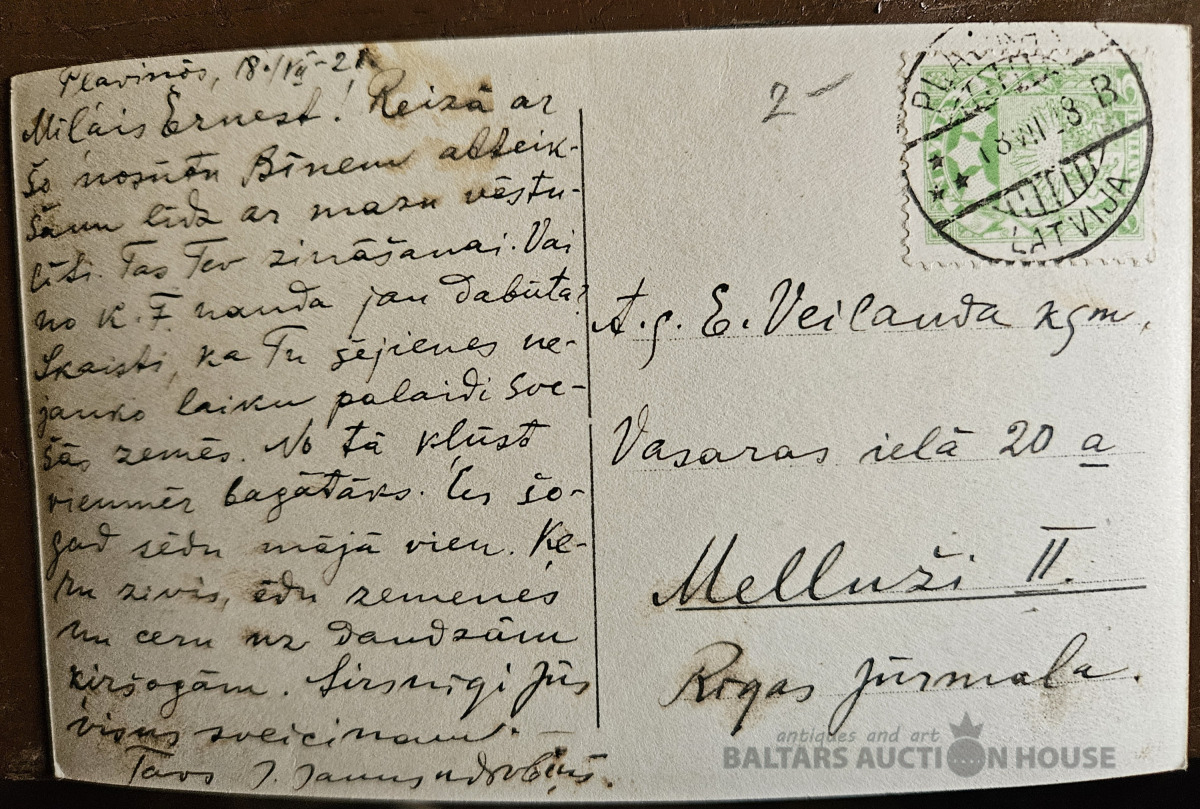 Pļaviņās, 18./VII-28.
Mīļais Ernest! Reizē ar
šo nosūtu Bīnem atteik-
šanu līdz ar mazu vēstu-
līti. Tas Tev zināšanai. Vai
no K. F. nauda jau dabūta?
Skaisti, ka Tu šejienes ne-
jauko laiku palaidi sve-
šās zemēs. No tā kļūst
vienmēr bagātāks. Es šo-
gad sēdu mājā vien. Ķe-
ru zivis, ēdu zemenes
un ceru uz daudzām
ķiršogām. Sirsnīgi Jūs
visus sveicinam.
Tavs J. Jaunsudrabiņš.
2-
LATVIJA
18 VII 28 B
A. g. E. Veilanda kgm.
Vasaras ielā 20 a
Mellužī II.
Rīgas Jūrmala.
antiques and art
BALTARS AUCTION HOUSE